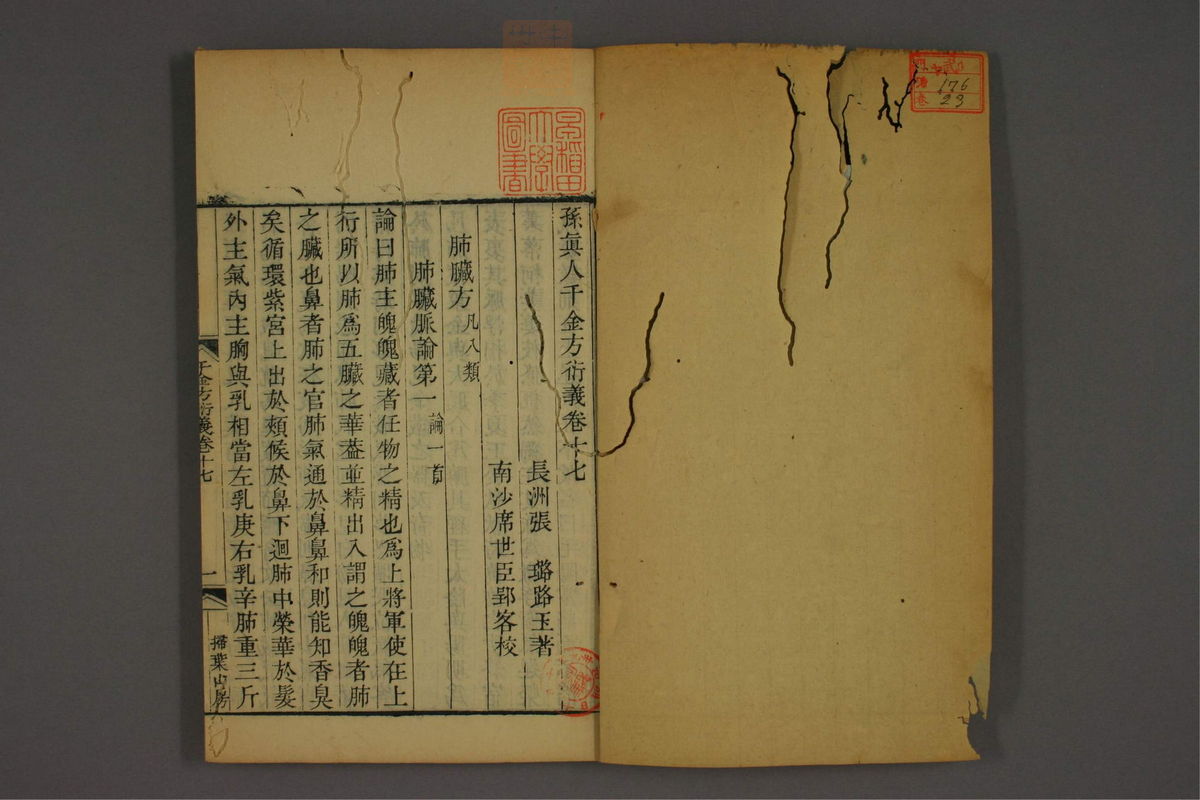 孫眞人千金方衍義卷十七
長洲張　璐路玉著
南沙席世臣郢客校
肺臟方凡八類
肺臟脈論第一論一首
論曰肺主魄魄藏者任物之精也爲上將軍使在上
行所以肺爲五臟之華葢並精出入謂之魄魄者肺
之臟也鼻者肺之官肺氣通於鼻鼻和則能知香臭
矣循環紫宮上出於頰候於鼻下迴肺中榮華於髮
外主氣內主胸與乳相當左乳庚右乳辛肺重三斤
千金方衍義卷十七
一
掃葉山房
早稻田
大學
圖書
176
23